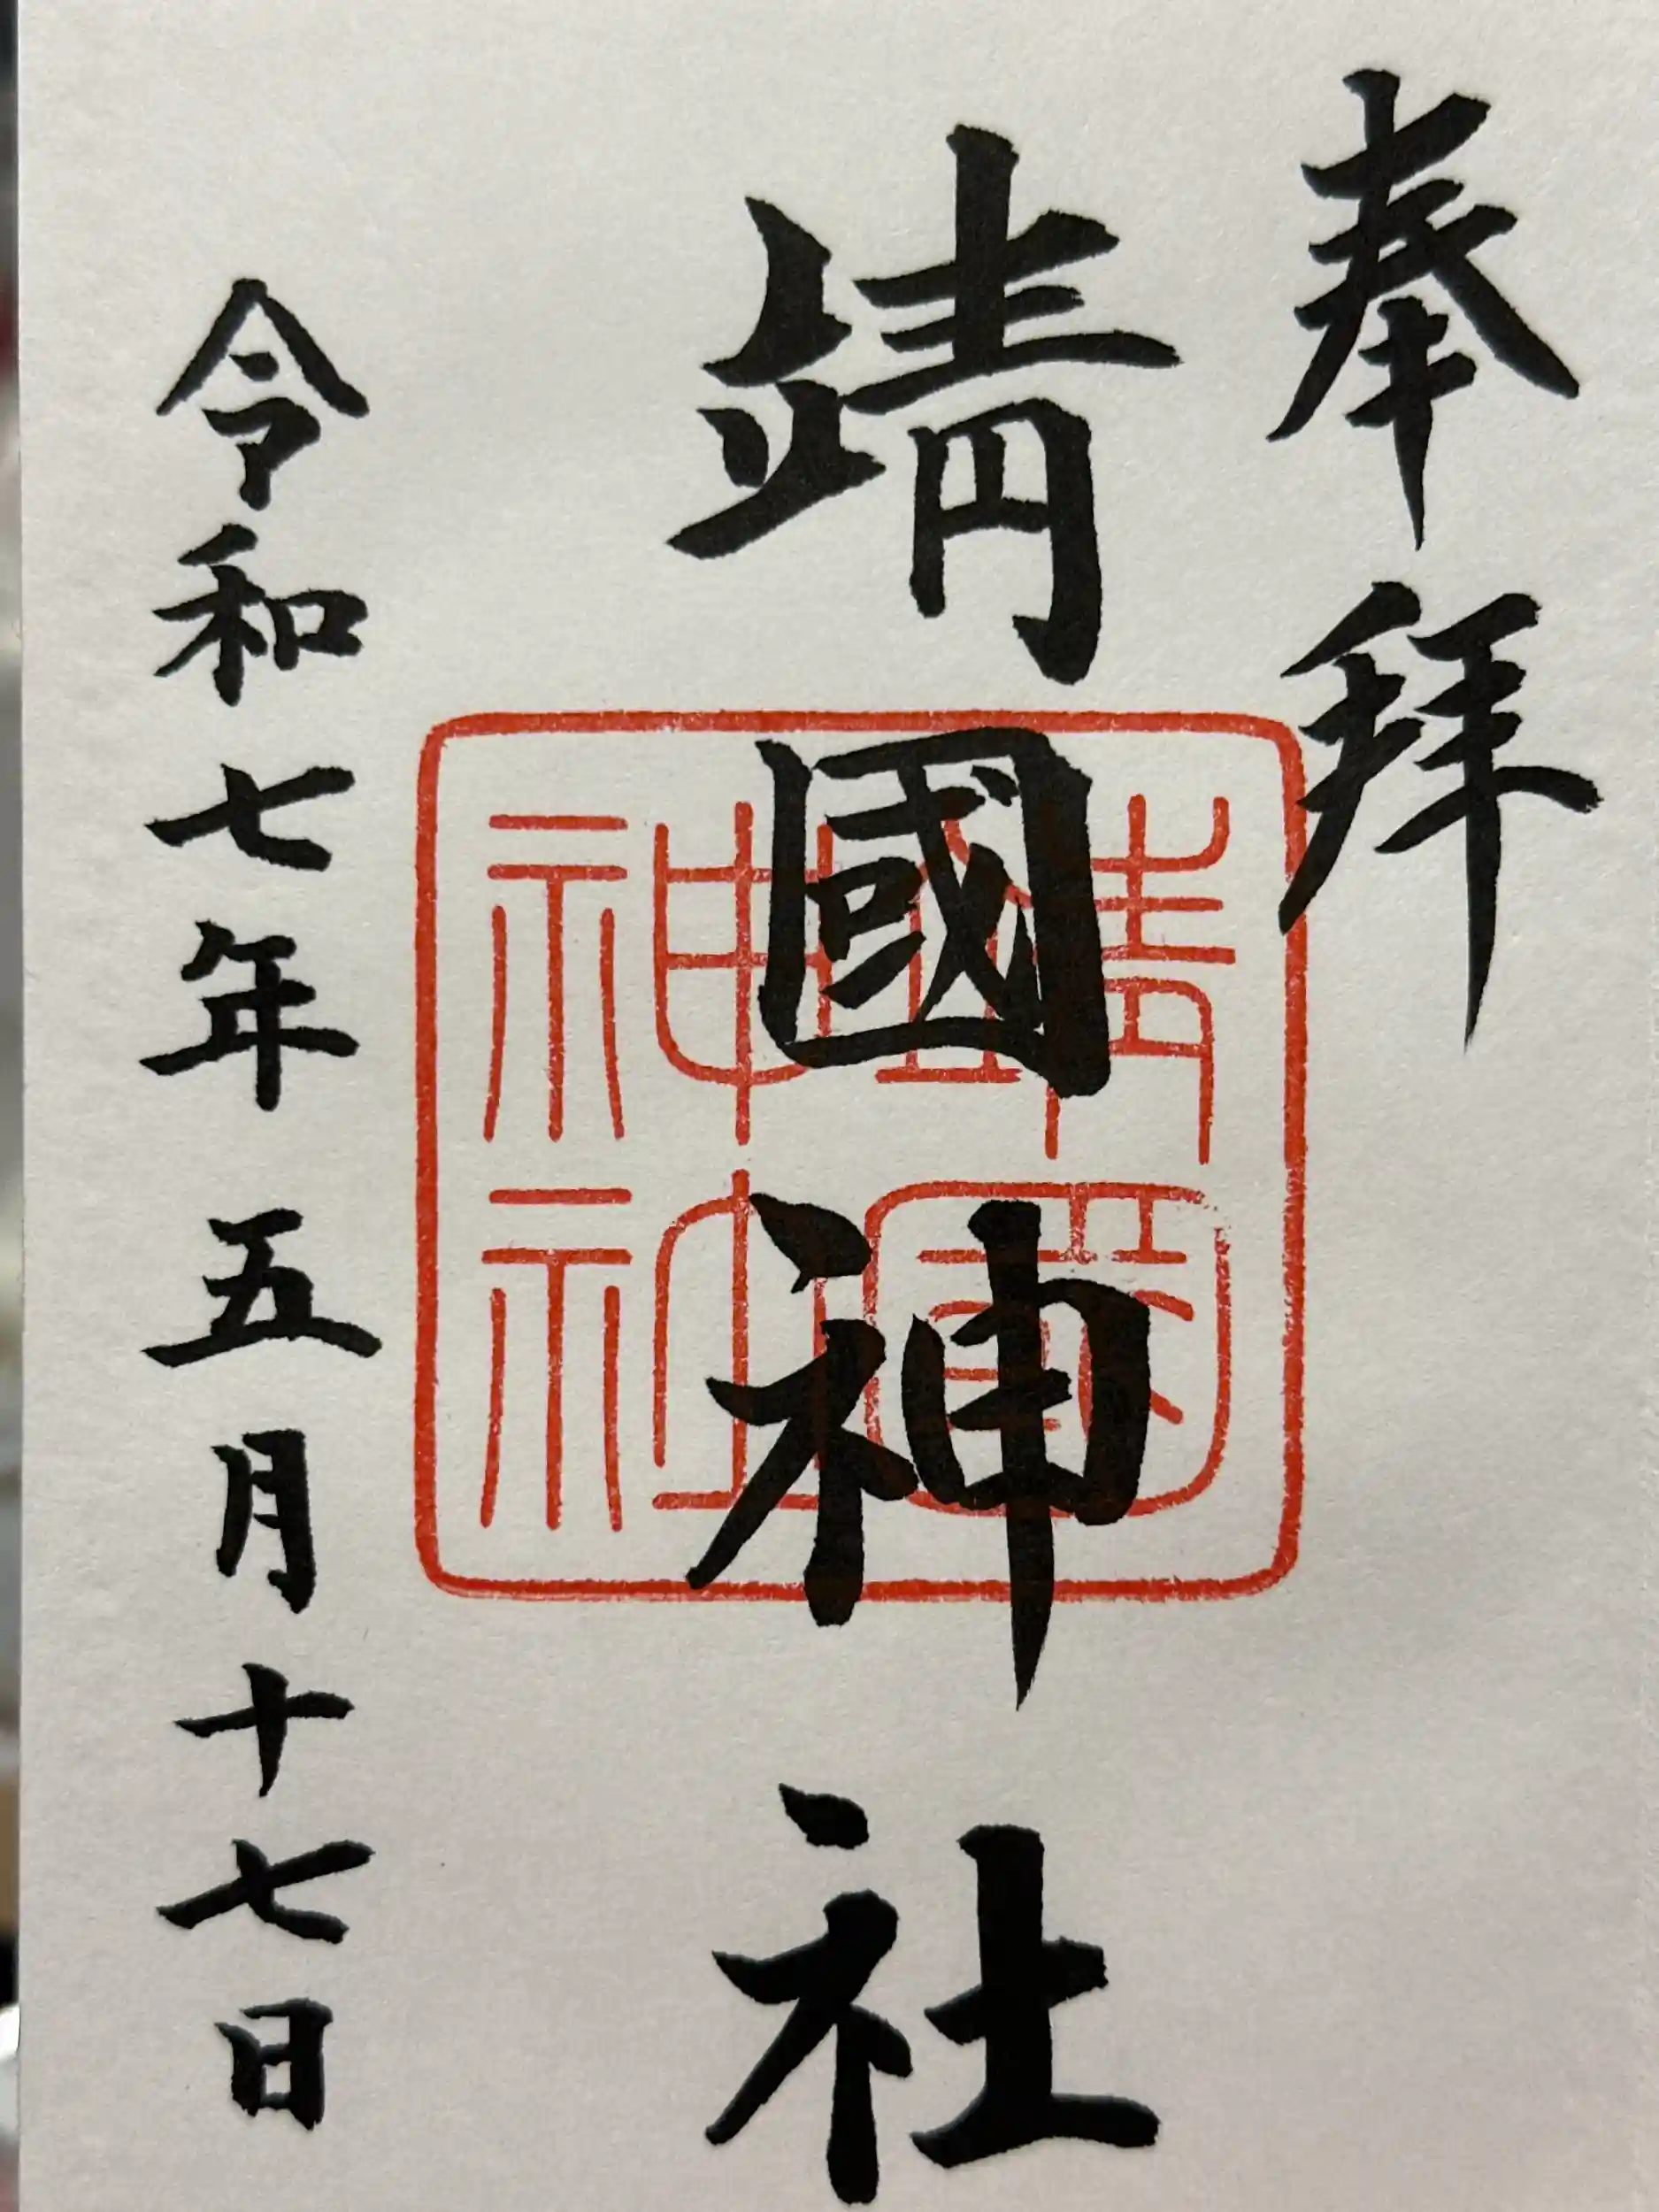 奉拜
靖國神社
靖國
神社
令和七年五月十七日